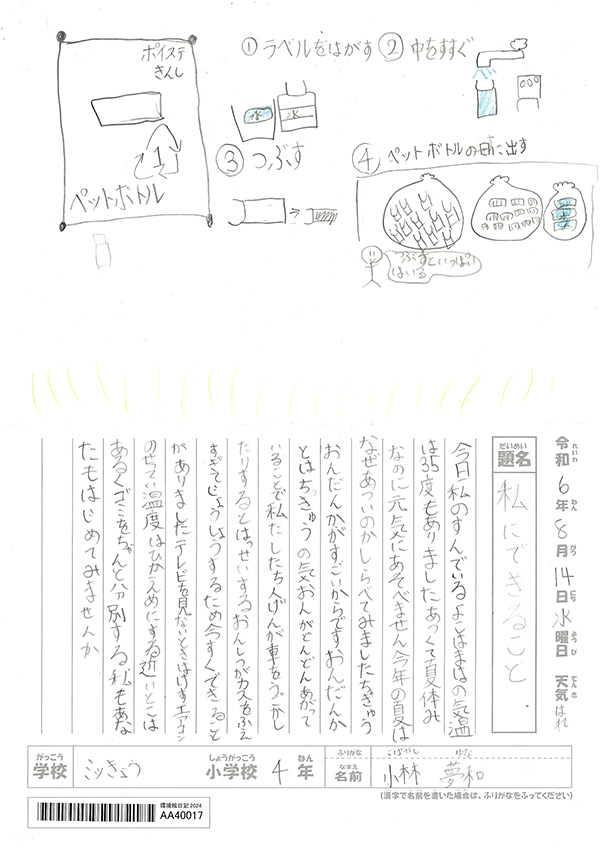 ポイステ
きんし
1
ペットボトル
① ラベルをはがす
② 中をすすぐ
水
水
③ つぶす
④ ペットボトルの日に出す
つぶすといっぱい
はいる
令和6年8月14日水曜日 天気はれ
れいわ ねん がつ にち ようび てんき
だいめい
題名
私にできること
今日私のすんでいるよこはまはの気温
は35度もありましたあつくて夏休み
なのに元気にあそべません今年の夏は
なぜあついのかしらべてみましたちきゅう
おんだんかがすごいからです。おんだんか
とはちきゅうの気おんがどんどんあがって
いることで私たしたち人げんが車をうごかし
たりするとはっせいするおんしつガスをふえ
すぎてじょうしょうするため今すぐできること
がありましたテレビを見ないときはけすエアコン
のせってい温度はひかえめにする近いとこは
あるくゴミをちゃんと分別する私もあな
たもはじめてみませんか
がっこう
学校
ミッきょう
しょうがっこう
小学校
4
ねん
年
ふりがな
なまえ
名前
こばやし ゆな
小林 夢和
(漢字で名前を書いた場合は、ふりがなをふってください)
環境絵日記 2024
AA40017